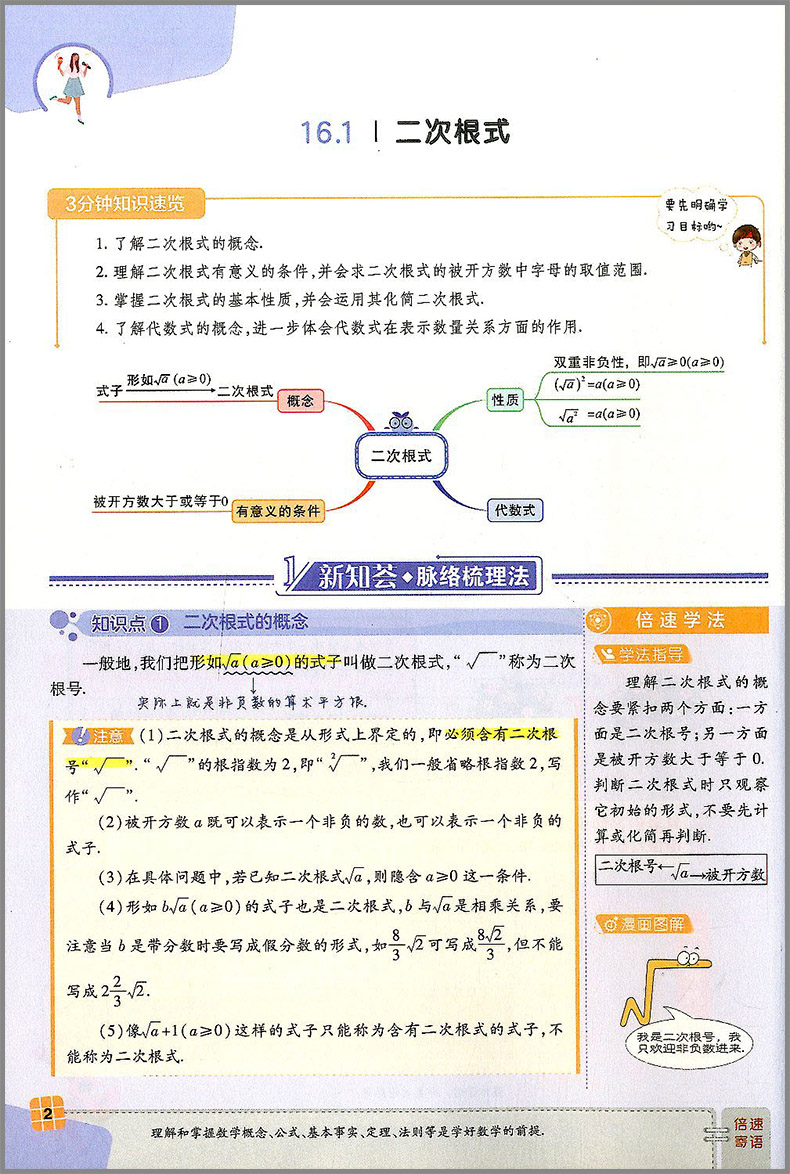 16.1 | 二次根式
3分钟知识速览
要先明确学
习目标哟~
1. 了解二次根式的概念.
2. 理解二次根式有意义的条件,并会求二次根式的被开方数中字母的取值范围.
3. 掌握二次根式的基本性质,并会运用其化简二次根式.
4. 了解代数式的概念,进一步体会代数式在表示数量关系方面的作用.
式子 形如√a (a≥0) 二次根式 概念
双重非负性，即√a≥0(a≥0)
(√a)²=a(a≥0)
√a² =a(a≥0)
性质
二次根式
被开方数大于或等于0 有意义的条件
代数式
1 新知荟·脉络梳理法
知识点1 二次根式的概念
一般地,我们把形如√a(a≥0)的式子叫做二次根式,“√ ”称为二次
根号.
实际上就是非负数的算术平方根.
注意 (1)二次根式的概念是从形式上界定的,即必须含有二次根
号“√ ”.“√ ”的根指数为2,即“²√ ”,我们一般省略根指数2,写
作“√ ”.
(2)被开方数a既可以表示一个非负的数,也可以表示一个非负的
式子.
(3)在具体问题中,若已知二次根式√a,则隐含a≥0这一条件.
(4)形如b√a(a≥0)的式子也是二次根式,b与√a是相乘关系,要
注意当b是带分数时要写成假分数的形式,如8/3√2可写成8√2/3,但不能
写成2 2/3√2.
(5)像√a+1(a≥0)这样的式子只能称为含有二次根式的式子,不
能称为二次根式.
倍速学法
学法指导
理解二次根式的概
念要紧扣两个方面:一方
面是二次根号;另一方面
是被开方数大于等于0.
判断二次根式时只观察
它初始的形式,不要先计
算或化简再判断.
二次根号←√a→被开方数
漫画图解
我是二次根号，我
只欢迎非负数进来.
2
理解和掌握数学概念、公式、基本事实、定理、法则等是学好数学的前提.
倍速
寄语